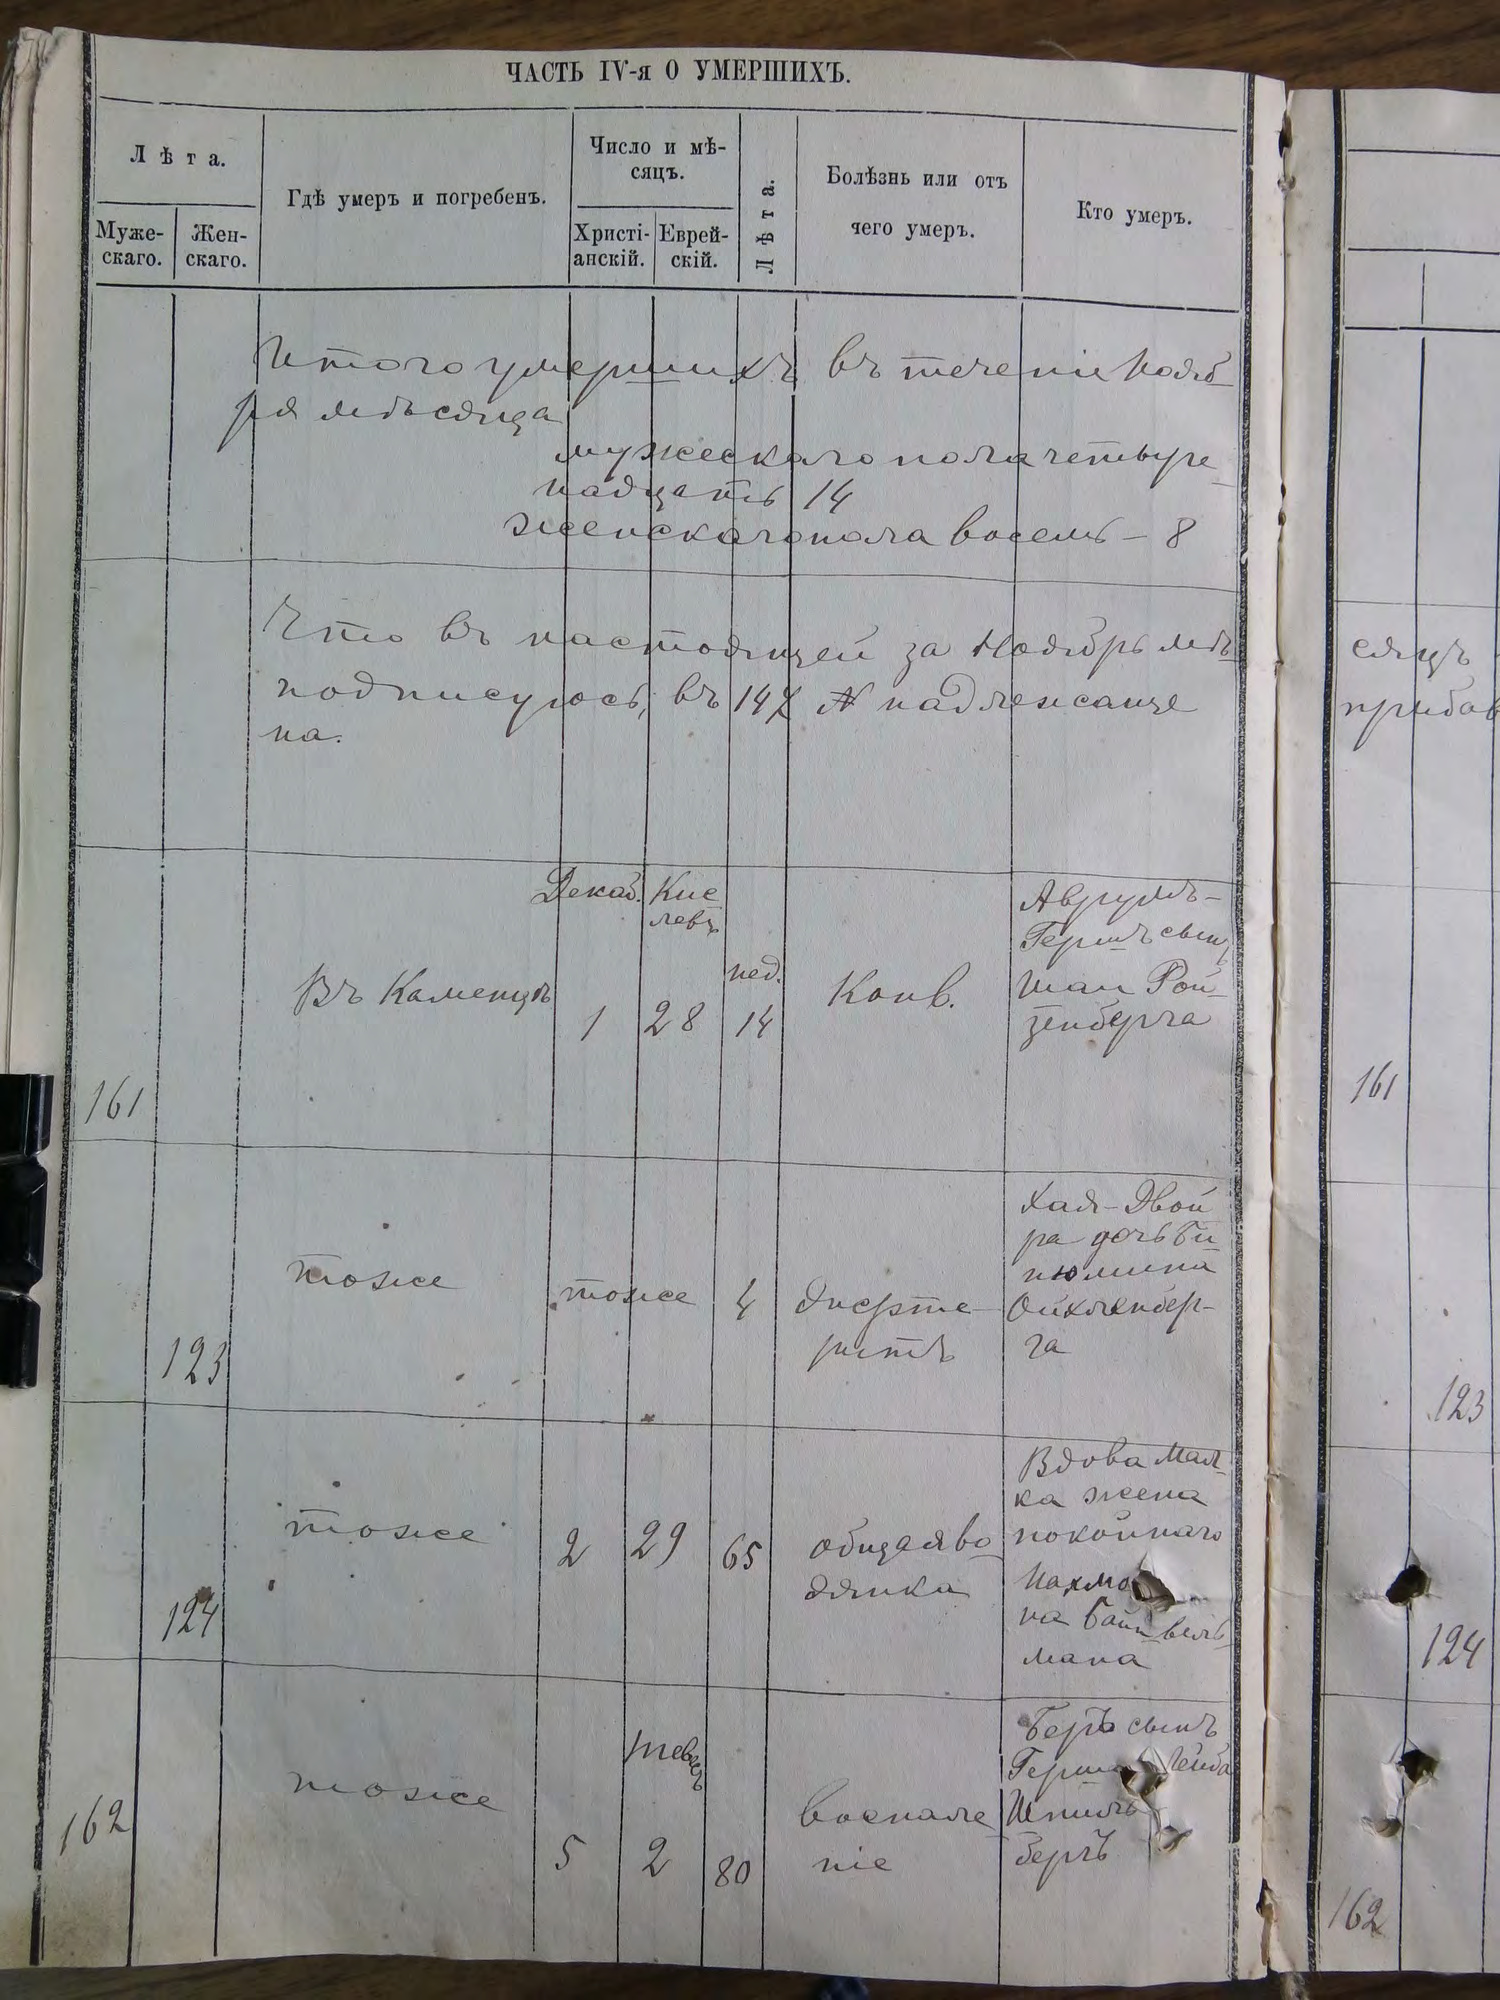 ЧАСТЬ IV-я О УМЕРШИХЪ.
Лѣта.
Муже-
скаго.
Жен-
скаго.
Гдѣ умеръ и погребенъ.
Число и мѣ-
сяцъ.
Христі-
анскій.
Еврей-
скій.
Лѣта.
Болѣзнь или отъ
чего умеръ.
Кто умеръ.
Итого умершихъ въ теченіе Нояб-
ря мѣсяца
мужескаго пола четыре-
надцать 14
женскаго пола восемь - 8
Что въ настоящей за Ноябрь мѣ-
подписуюсь, въ 147 № надлежаще
на.
сяцъ
прибав
161
Въ Каменцѣ
Декаб.
1
Кис
левъ
28
нед.
14
Конв.
Аврумъ-
Гершъ сынъ
Шаи Рой-
зенберга
161
123
тоже
тоже
4
дифте-
ритъ
Хая-Двой
ра дочь Би-
нюмина
Ойхленбер-
га
123
124
тоже
2
29
65
общая во-
дянка
Вдова Мал-
ка жена
покойнаго
Нахма
на Байн-вель-
мана
124
162
тоже
5
тевесъ
2
80
воспале-
ніе
Беръ сынъ
Герша Лейба
Шпиль
бергъ
162